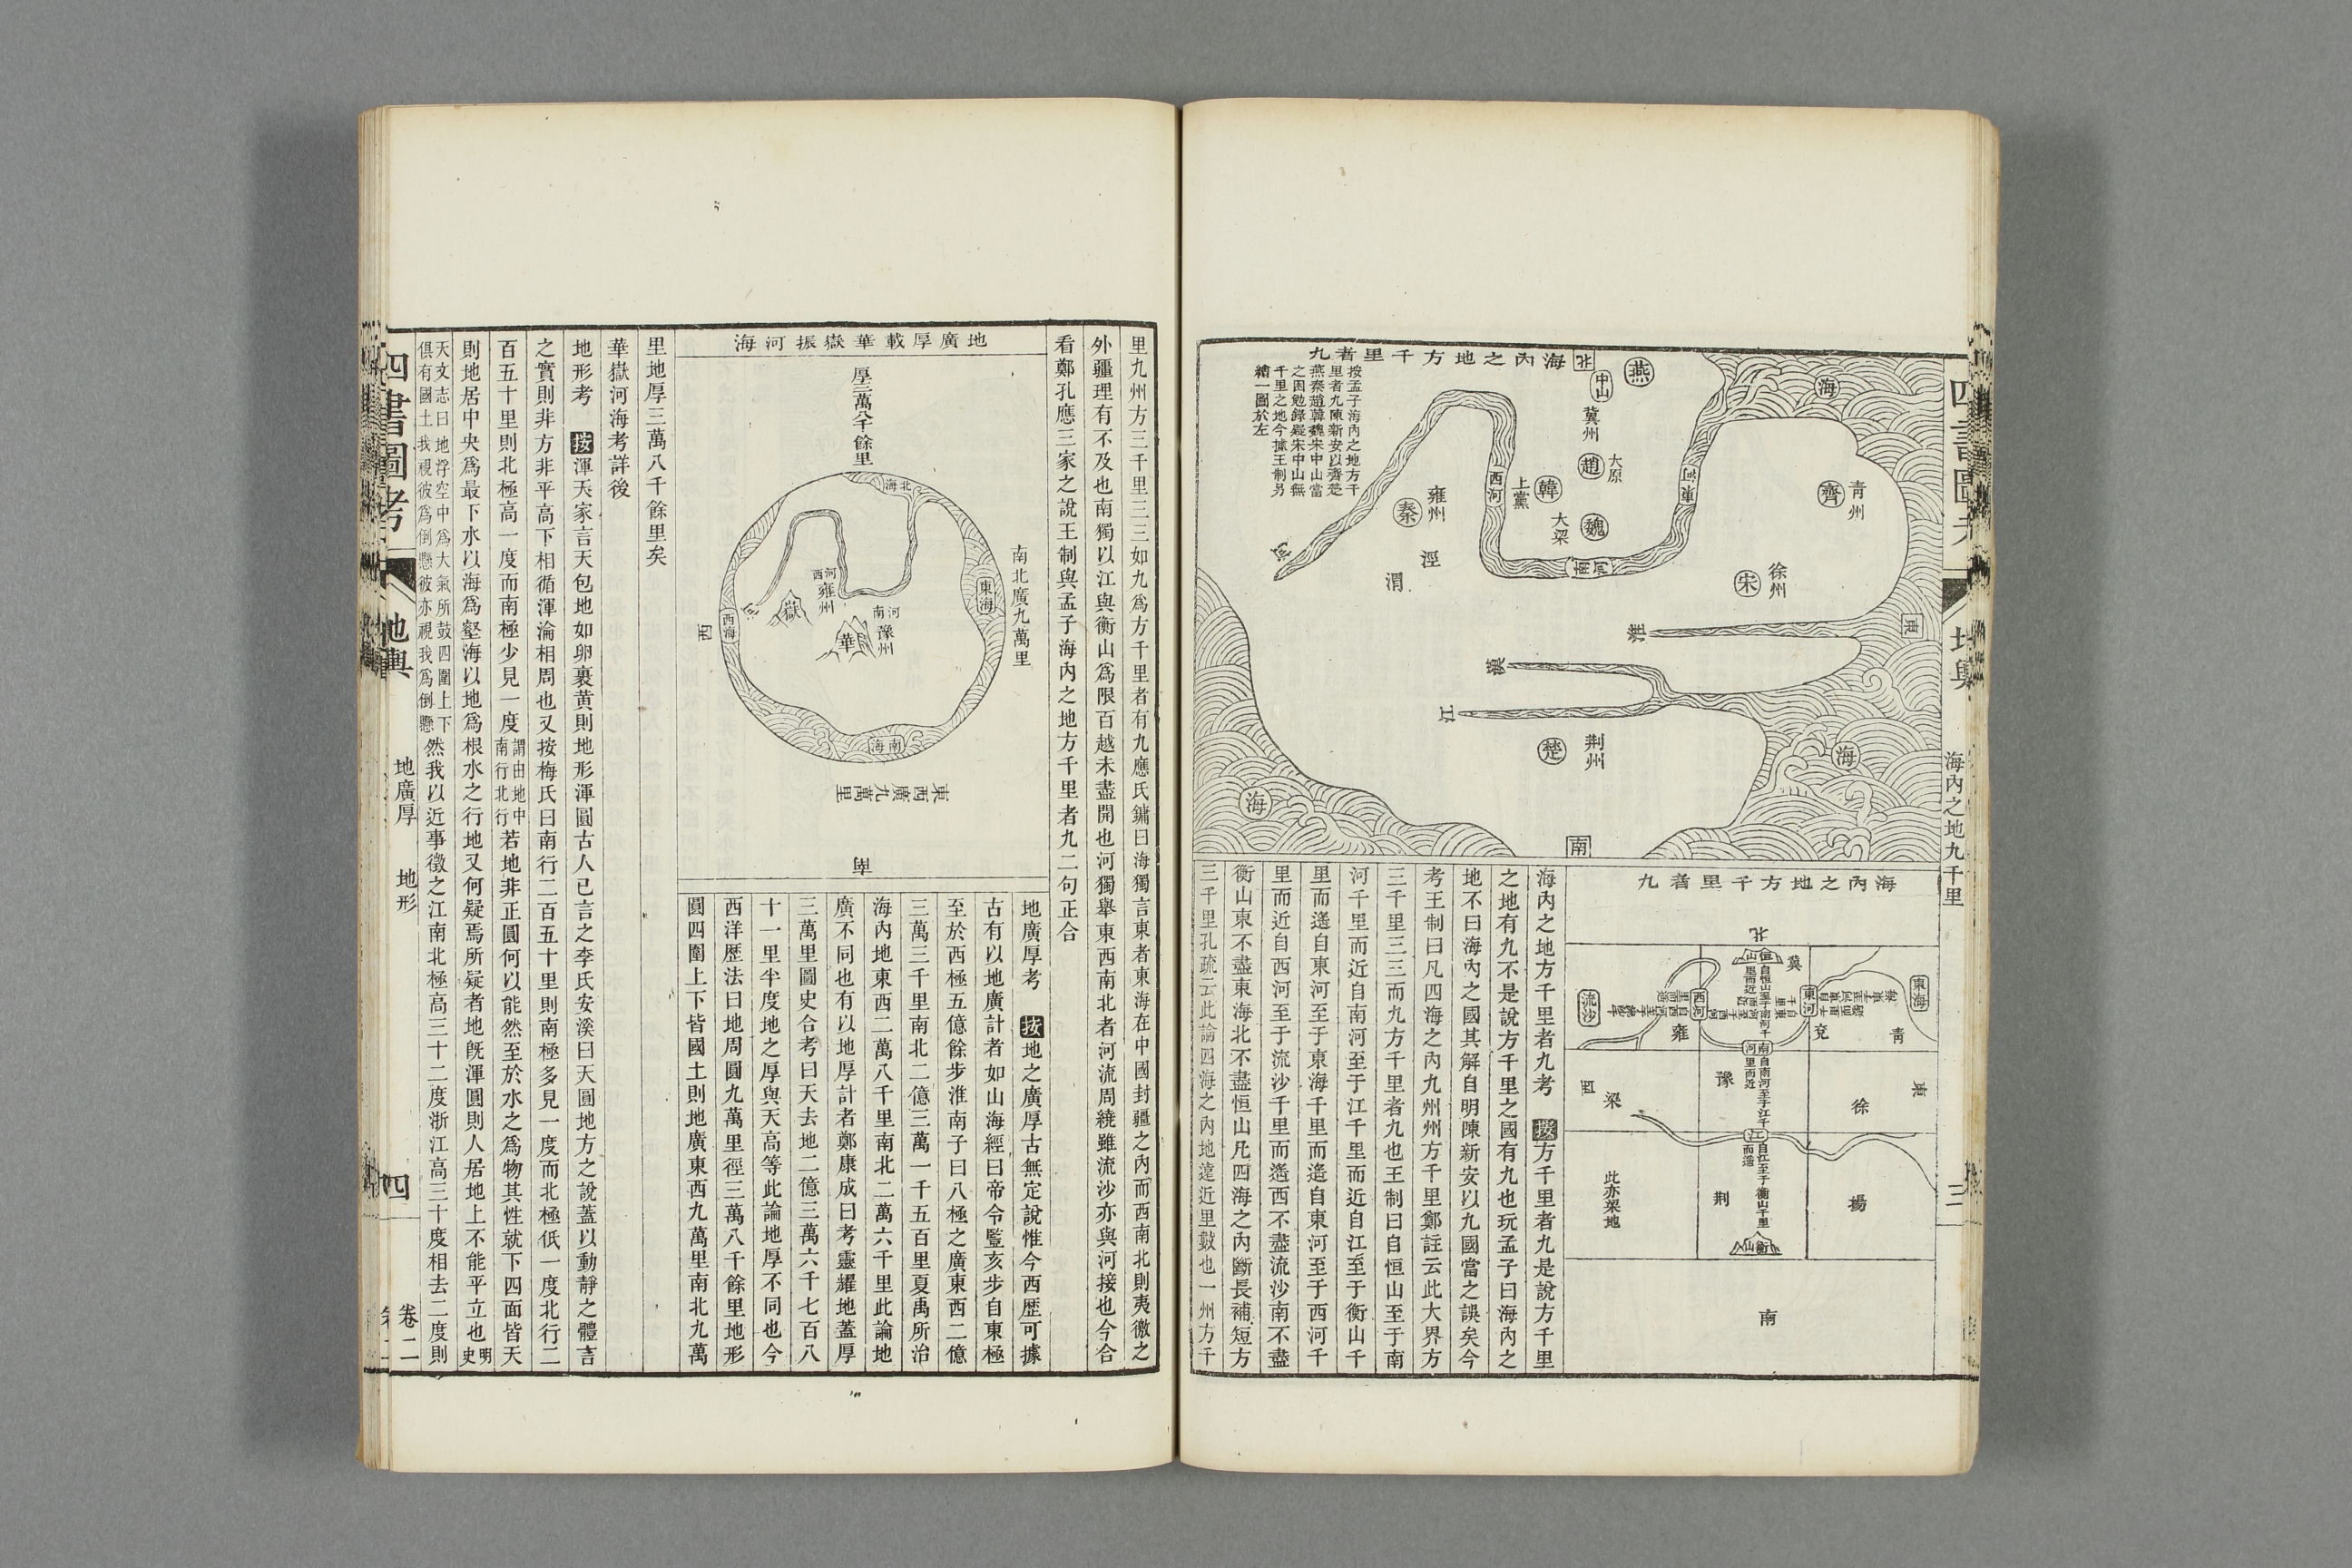 四書圖考
地輿
海內之地九千里
三
海內之地方千里者九
按孟子海內之地方千
里者九陳新安以齊楚
燕秦趙韓魏宋中山當
之困勉錄疑宋中山無
千里之地今據王制另
補一圖於左
北
燕
中山
海
冀州
趙
大原
上黨
韓
魏
大梁
西河
東河
南河
雍州
秦
涇
渭
河
青州
齊
徐州
宋
東
淮
漢
江
楚
荆州
海
海
南
海內之地方千里者九
北
恒山
冀
自恒山至于南河千
里而近
東海
東河
西河
流沙
雍
兗
青
南河
自南河至于江千
里而近
豫
西
梁
徐
東
江
自江至于衡山千里
而遥
荆
揚
此亦梁地
衡山
南
海內之地方千里者九考 按方千里者九是說方千里
之地有九不是說方千里之國有九也玩孟子曰海內之
地不曰海內之國其解自明陳新安以九國當之誤矣今
考王制曰凡四海之內九州州方千里鄭註云此大界方
三千里三三而九方千里者九也王制曰自恒山至于南
河千里而近自南河至于江千里而近自江至于衡山千
里而遙自東河至于東海千里而遙自東河至于西河千
里而近自西河至于流沙千里而遙西不盡流沙南不盡
衡山東不盡東海北不盡恒山凡四海之內斷長補短方
三千里孔疏云此論四海之內地遠近里數也一州方千
里九州方三千里三三如九爲方千里者有九應氏鏞曰海獨言東者東海在中國封疆之內而西南北則夷徼之
外疆理有不及也南獨以江與衡山爲限百越未盡開也河獨舉東西南北者河流周繞雖流沙亦與河接也今合
看鄭孔應三家之說王制與孟子海內之地方千里者九二句正合
地廣厚載華嶽振河海
厚三萬八千餘里
南北廣九萬里
北海
東海
西海
南海
西
河
嶽
河西
雍州
河南
豫州
華
東西廣九萬里
南
地廣厚考 按地之廣厚古無定說惟今西歷可據
古有以地廣計者如山海經曰帝令豎亥步自東極
至於西極五億餘步淮南子曰八極之廣東西二億
三萬三千里南北二億三萬一千五百里夏禹所治
海內地東西二萬八千里南北二萬六千里此論地
廣不同也有以地厚計者鄭康成曰考靈耀地蓋厚
三萬里圖史合考曰天去地二億三萬六千七百八
十一里半度地之厚與天高等此論地厚不同也今
西洋歷法曰地周圓九萬里徑三萬八千餘里地形
圓四圍上下皆國土則地廣東西九萬里南北九萬
里地厚三萬八千餘里矣
華嶽河海考詳後
地形考 按渾天家言天包地如卵裹黃則地形渾圓古人已言之李氏安溪曰天圓地方之說蓋以動靜之體言
之實則非方非平高下相循渾淪相周也又按梅氏曰南行二百五十里則南極多見一度而北極低一度北行二
百五十里則北極高一度而南極少見一度謂由地中南行北行若地非正圓何以能然至於水之爲物其性就下四面皆天
則地居中央爲最下水以海爲壑海以地爲根水之行地又何疑焉所疑者地旣渾圓則人居地上不能平立也明史
天文志曰地浮空中爲大氣所鼓四圍上下俱有國土我視彼爲倒懸彼亦視我爲倒懸然我以近事徵之江南北極高三十二度浙江高三十度相去二度則
四書圖考
地輿
地廣厚
地形
四
卷二